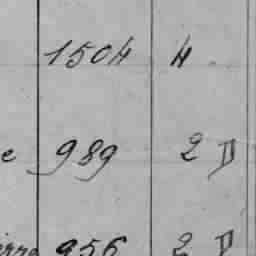 1504 4
e 989 2 D
956 2 D